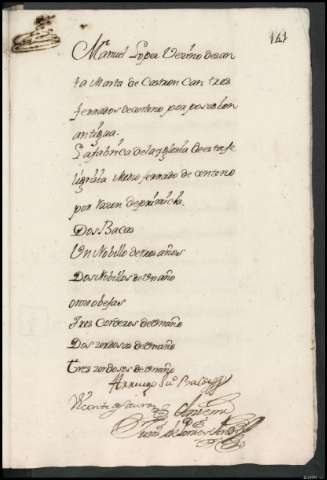 141
Manuel Lopez Vezino de san
ta Marta de Castron Can tres
ferrados de zenteno por poseslon
antigua.
La fabrica de la yglesia de esta fe
ligresia Medio ferrado de centeno
por razon de primicia.
Dos Bacas
Un Nobillo de tres años
Dos Nobillos de un año
onze obejas
Tres Corderos de un año
Dos zerdosos de un año
Tres zerdosos de un año
Vicente
Antemi